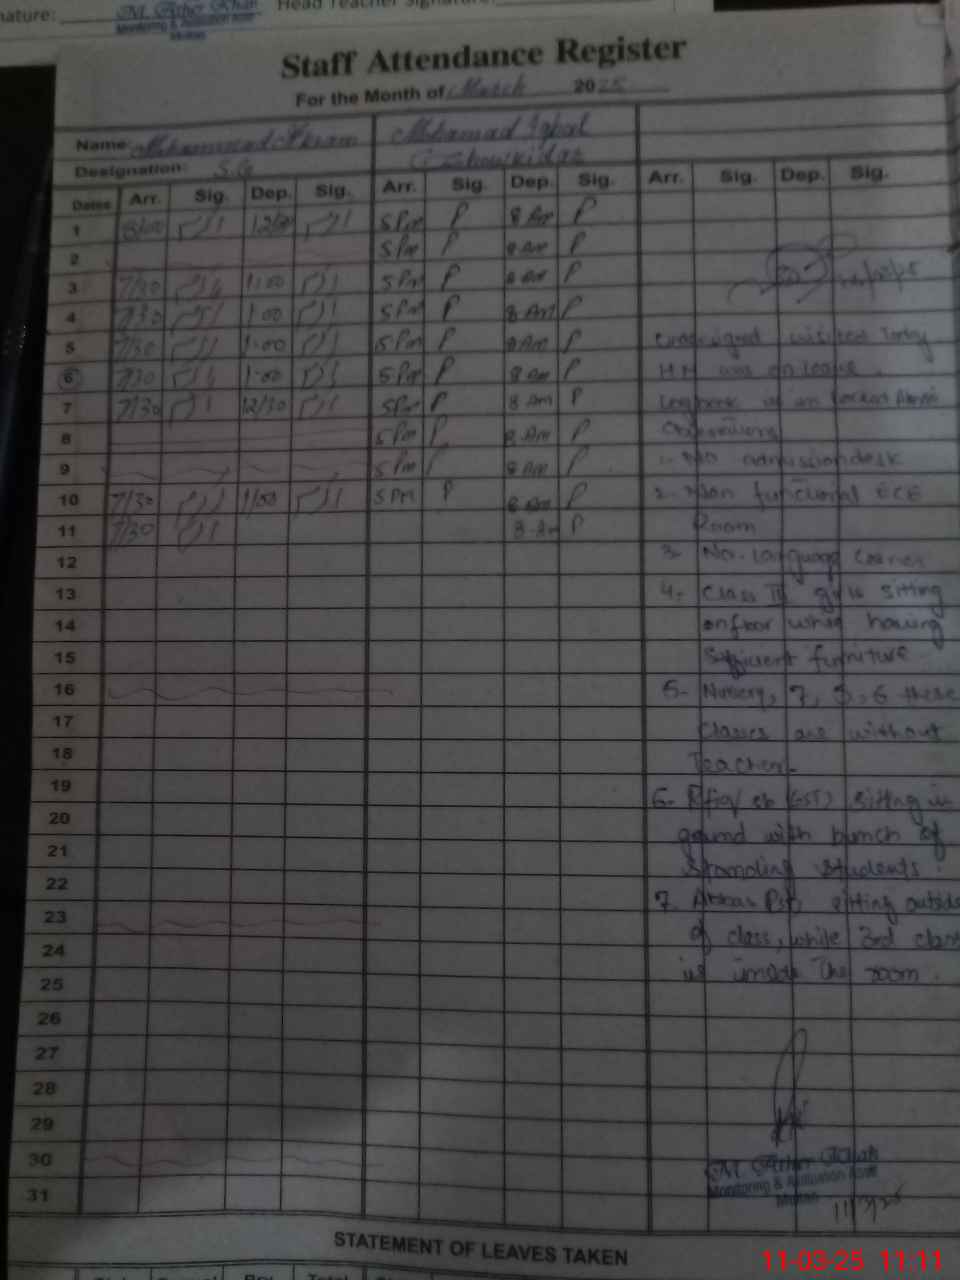 nature: Head Teacher Signature:
M. Ather Khan
Monitoring & Evaluation Asstt
Multan
Staff Attendance Register
For the Month of March 2025
Name: Muhammad Akram Muhamad Iqbal
Designation: S.G Chowkidar
Dates Arr. Sig. Dep. Sig. Arr. Sig. Dep. Sig. Arr. Sig. Dep. Sig.
1 8/00 12/00 5 Pm P 8 Am P
2 5 Pm P 8 Am P
3 7/30 1:00 5 Pm P 8 Am P
4 7/30 1:00 5 Pm P 8 Am P
5 7/30 1:00 5 Pm P 8 Am P
6 7/30 1:00 5 Pm P 8 Am P
7 7/30 12/30 5 Pm P 8 Am P
8 5 Pm P 8 Am P
9 5 Pm P 8 Am P
10 7/30 1/00 5 Pm P 8 Am P
11 7/30 8 Am P
12
13
14
15
16
17
18
19
20
21
22
23
24
25
26
27
28
29
30
31
visited Today
was on leave.
Log book is in
1- No admission desk
2- Non functional ECE
Room
3- No. Language Corner
4- Class sitting
on floor while having
sufficient furniture
5- Nursery, 7, 6 these
classes are without
Teacher.
6- (EST) sitting in
ground with bunch of
standing students.
7. Pst, sitting outside
of class, while 3rd class
is inside the room.
M. Ather Khan
Monitoring & Evaluation Asstt
Multan
11/3/25
STATEMENT OF LEAVES TAKEN
11-03-25 11:11